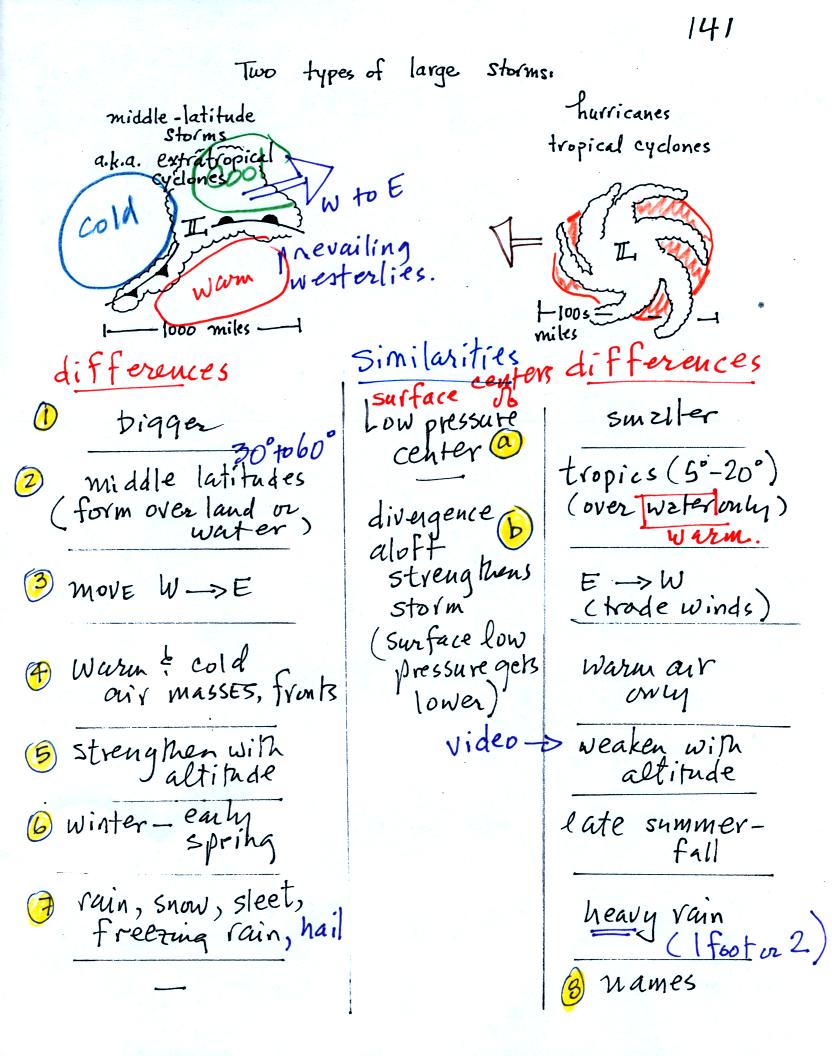 141
Two types of large storms:
middle-latitude
storms
a.k.a. extratropical
cyclones
cool
cold
L
warm
W to E
prevailing
westerlies.
1000 miles
hurricanes
tropical cyclones
L
100s
miles
differences
① bigger
30° to 60°
② middle latitudes
(form over land or
water)
③ move W → E
④ warm & cold
air masses, fronts
⑤ strengthen with
altitude
⑥ winter - early
spring
⑦ rain, snow, sleet,
freezing rain, hail
—
Similarities
surface centers
Low pressure
center ⓐ
divergence ⓑ
aloft
strengthens
storm
(surface low
pressure gets
lower)
video →
differences
smaller
tropics (5°-20°)
(over water only)
warm.
E → W
(trade winds)
warm air
only
weaken with
altitude
late summer-
fall
heavy rain
(1 foot or 2)
⑧ names